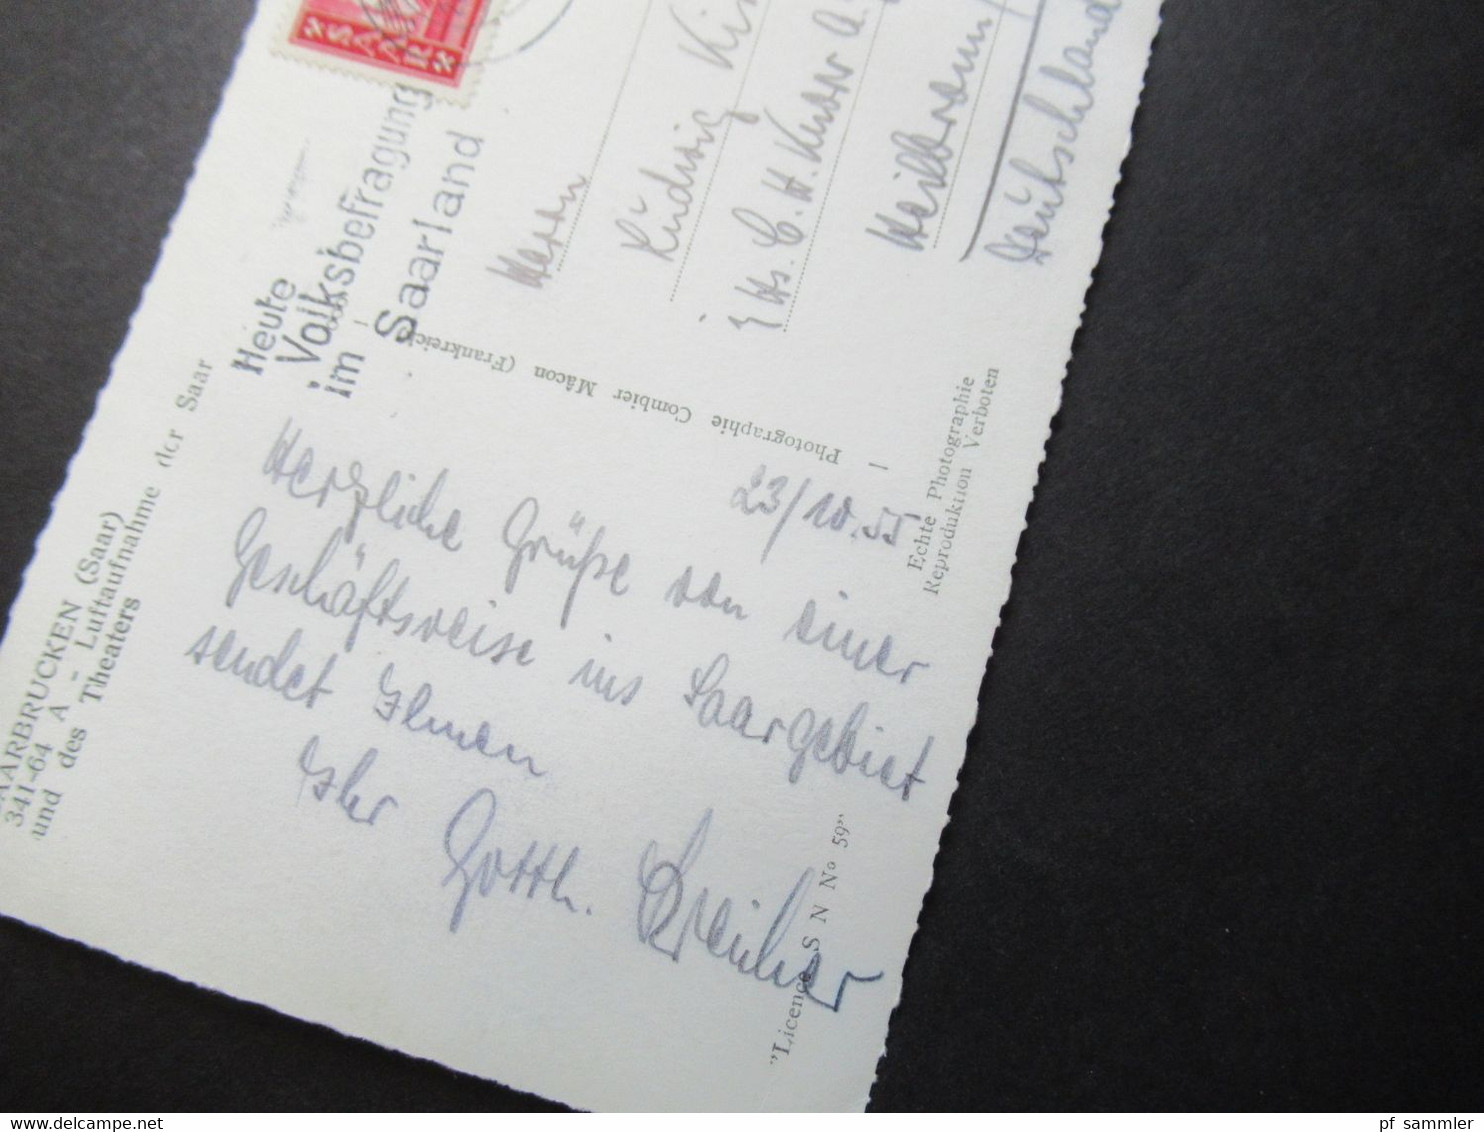 SAAR
Heute
Volksbefragung
im Saarland
Herrn
Ludwig
Heilbronn
Deutschland
AARBRUCKEN (Saar)
341-64 A - Luftaufnahme der Saar
und des Theaters
Photographie Combier Mâcon (Frankreich)
Echte Photographie
Reproduktion Verboten
23/10.55.
Herzliche Grüße von einer
Geschäftsreise ins Saargebiet
sendet Ihnen
Ihr Gotth.
"Licence S N N° 59"
pf sammler